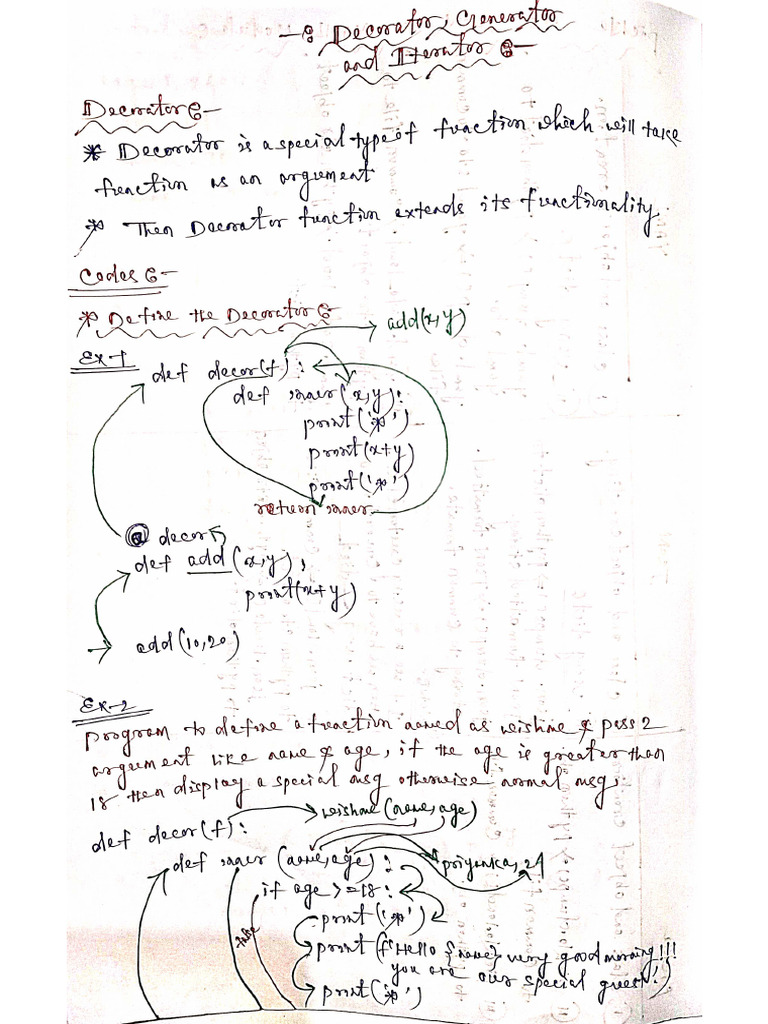 -: Decorator, Generator
and Iterator :-
Decorator :-
* Decorator is a special type of function which will take
function as an argument
* Then Decorator function extends its functionality
Codes :-
* Define the Decorator :-
add(x,y)
Ex-1
def decor(f):
def inner(x,y):
print('*')
print(x+y)
print('*')
return inner
@decor
def add(x,y):
print(x+y)
add(10,20)
Ex-2
program to define a function named as wishme & pass 2
argument like name & age, if the age is greater than
18 then display a special msg otherwise normal msg,
wishme(name,age)
def decor(f):
def inner (name,age):
priyanka, 21
if age >=18:
print('*')
false
print(f"Hello {name} very good morning!!!
you are our special guest!')
print('*')